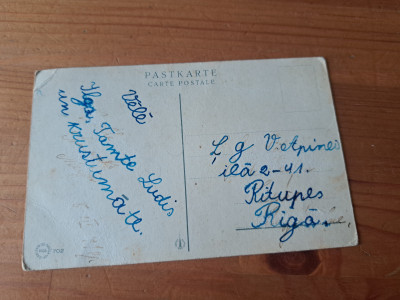 PASTKARTE
CARTE POSTALE
Vēlē
Ilga, Tamte Ludis
un krustumāte.
Ļ g V. Apines
ielā 2-41.
Ritupes
Rīgā.
700